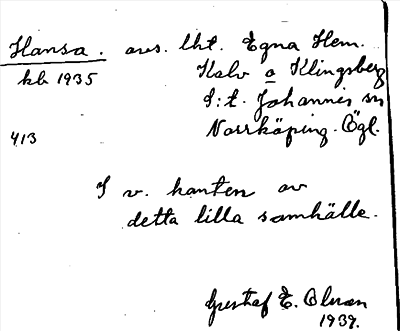 Hansa. avs. lht. Egna Hem.
kb 1935 Kalv o Klingsberg
S:t. Johannes sn
413 Norrköping. Ögl.
I v. kanten av
detta lilla samhälle.
Gustaf E. Olsson
1939.